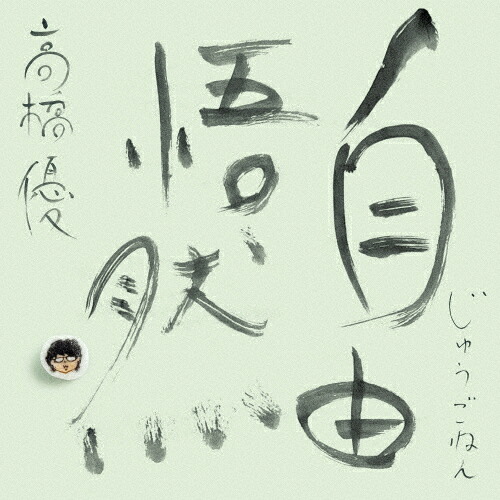 自由
悟然
じゅうごねん
高橋優